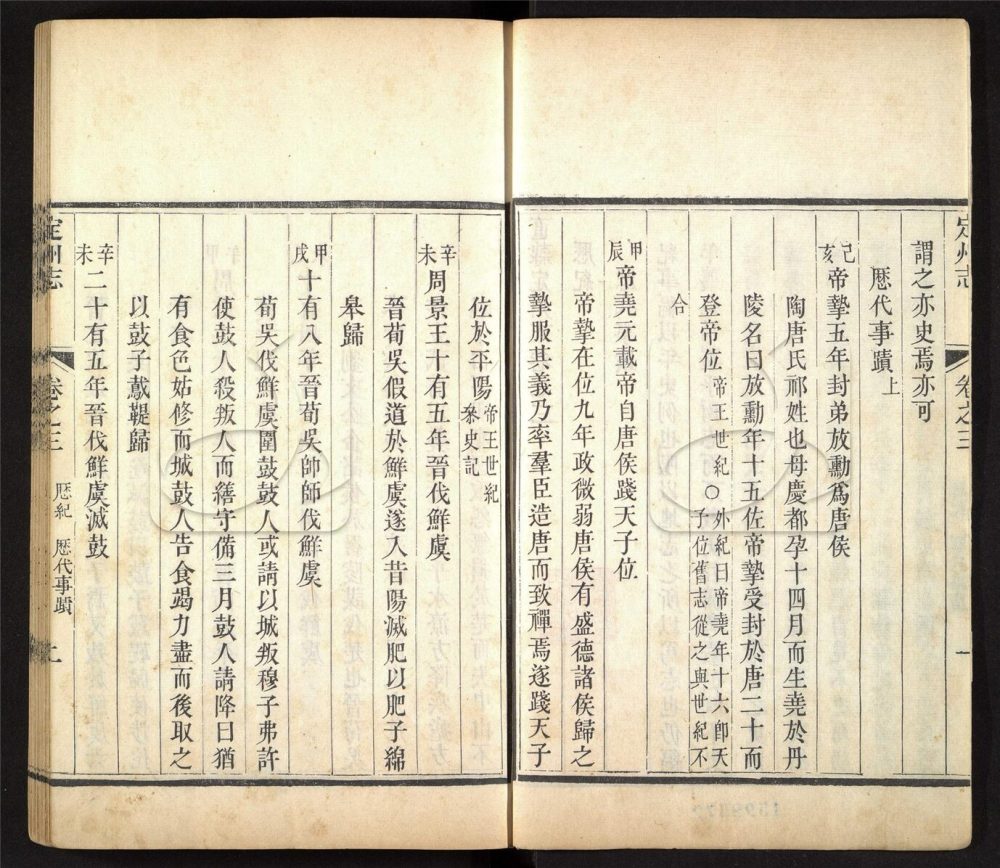 定州志
卷之三
一
謂之亦史焉亦可
厯代事蹟上
己亥帝摯五年封弟放勳爲唐侯
陶唐氏祁姓也母慶都孕十四月而生堯於丹
陵名曰放勳年十五佐帝摯受封於唐二十而
登帝位帝王世紀○外紀曰帝堯年十六卽天子位舊志從之與世紀不
合
甲辰帝堯元載帝自唐侯踐天子位
帝摯在位九年政微弱唐侯有盛德諸侯歸之
摯服其義乃率羣臣造唐而致禪焉遂踐天子
位於平陽帝王世紀叅史記
辛未周景王十有五年晉伐鮮虞
晉荀吳假道於鮮虞遂入昔陽滅肥以肥子綿
皋歸
甲戌十有八年晉荀吳帥師伐鮮虞
荀吳伐鮮虞圍鼓鼓人或請以城叛穆子弗許
使鼓人殺叛人而繕守備三月鼓人請降曰猶
有食色姑修而城鼓人告食竭力盡而後取之
以鼓子䳒鞮歸
辛未二十有五年晉伐鮮虞滅鼓
定州志
卷之三
厯紀 厯代事蹟
上